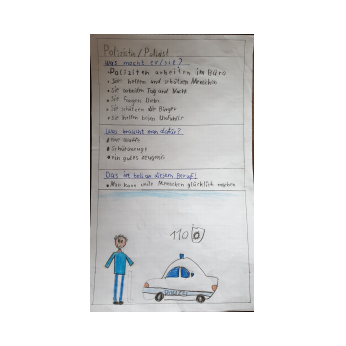 Polizistin/Polizist
Was macht er/sie?
Polizisten arbeiten im Büro
• Sie helfen und schützen Menschen
• Sie arbeiten Tag und Nacht
• Sie fangen Diebe
• Sie schützen die Bürger
• Sie helfen beim Unfälle
Was braucht man dafür?
•
• Schutzweste
• ein gutes zeugnis
Das ist toll an diesem Beruf!
• Man kann viele Menschen glücklich machen
110
POLIZEI